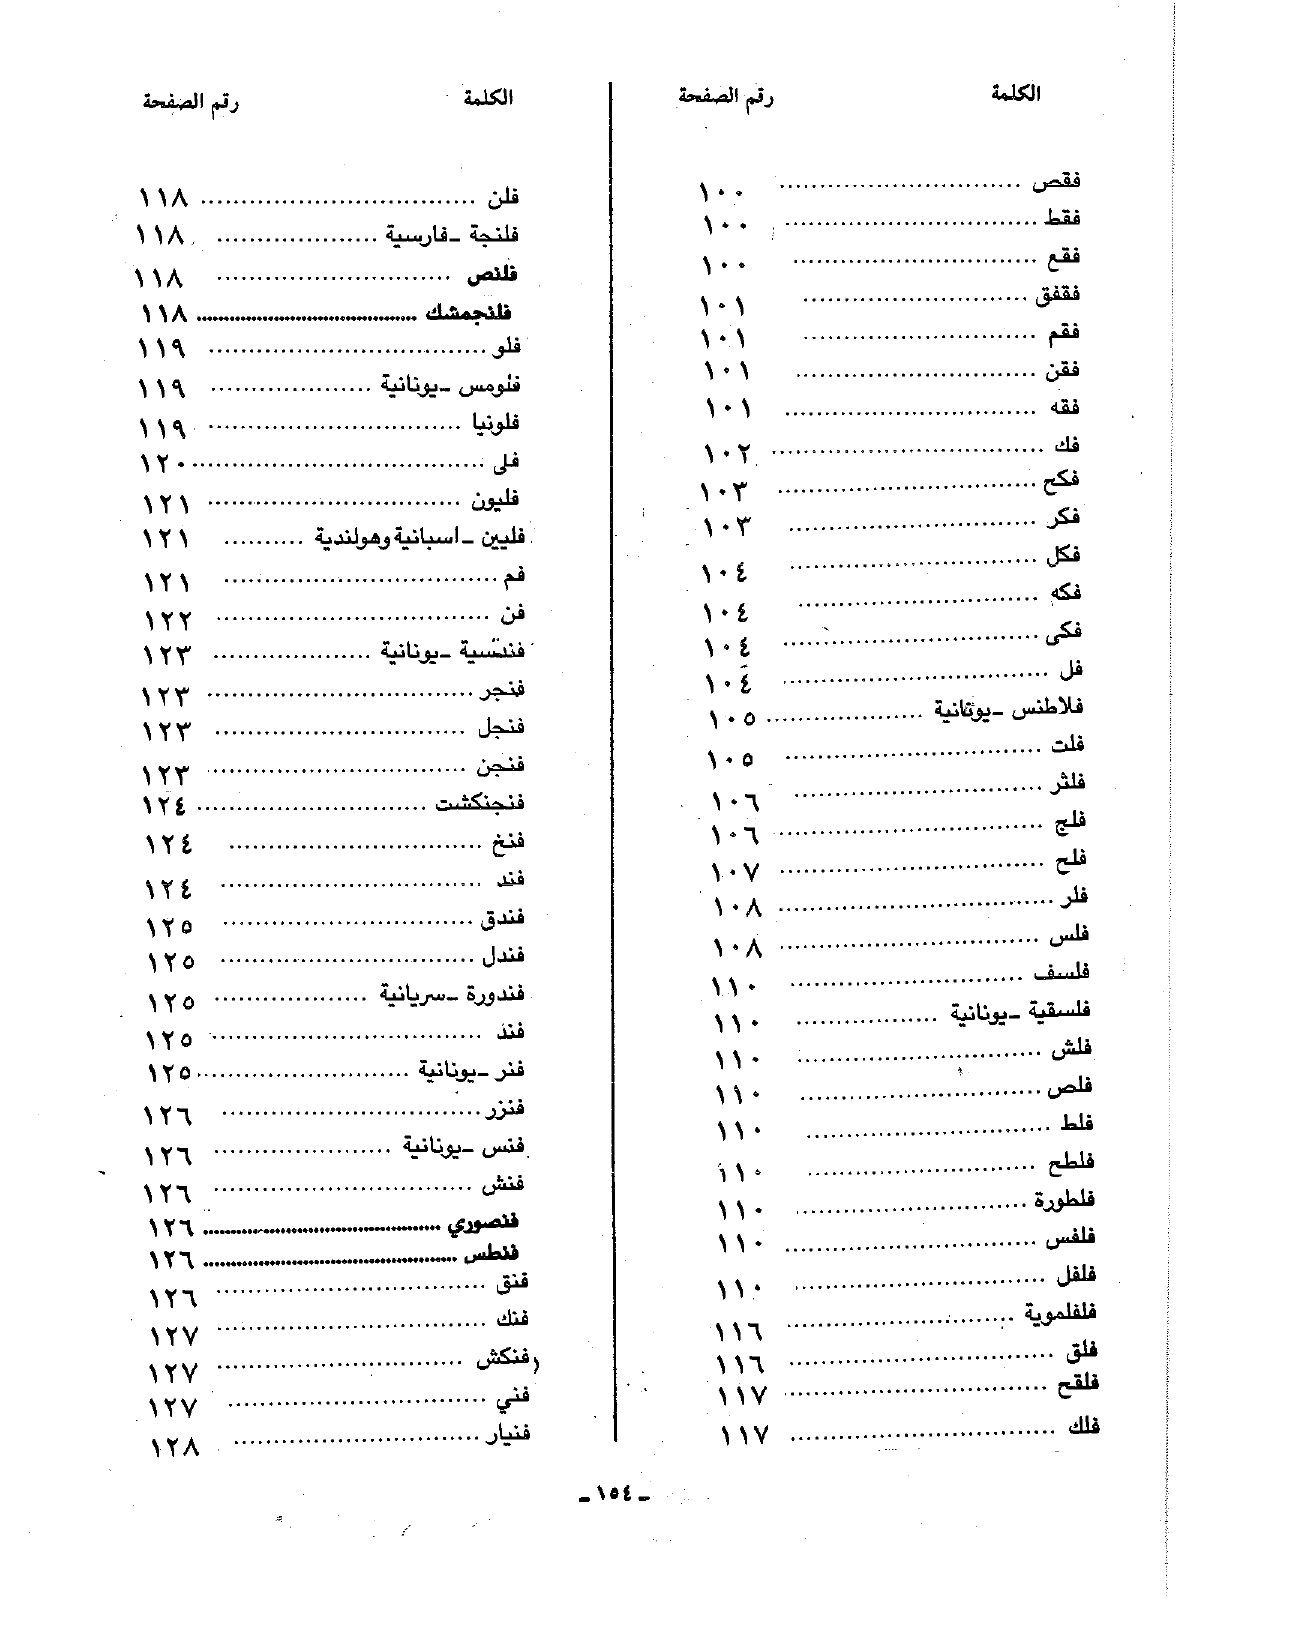 الكلمة رقم الصفحة
فقص ............................ ١٠٠
فقط ............................ ١٠٠
فقع ............................ ١٠٠
فقفق ............................ ١٠١
فقم ............................ ١٠١
فقن ............................ ١٠١
فقه ............................ ١٠١
فك ............................ ١٠٢
فكح ............................ ١٠٣
فكر ............................ ١٠٣
فكل ............................ ١٠٤
فكه ............................ ١٠٤
فكى ............................ ١٠٤
فل ............................ ١٠٤
فلاطنس ـ يونانية .................... ١٠٥
فلت ............................ ١٠٥
فلثر ............................ ١٠٦
فلج ............................ ١٠٦
فلح ............................ ١٠٧
فلر ............................ ١٠٨
فلس ............................ ١٠٨
فلسف ............................ ١١٠
فلسقية ـ يونانية .................... ١١٠
فلش ............................ ١١٠
فلص ............................ ١١٠
فلط ............................ ١١٠
فلطح ............................ ١١٠
فلطورة ............................ ١١٠
فلفس ............................ ١١٠
فلفل ............................ ١١٠
فلفلموية ............................ ١١٦
فلق ............................ ١١٦
فلقح ............................ ١١٧
فلك ............................ ١١٧
الكلمة رقم الصفحة
فلن ............................ ١١٨
فلنجة ـ فارسية .................... ١١٨
فلنص ............................ ١١٨
فلنجمشك ............................ ١١٨
فلو ............................ ١١٩
فلومس ـ يونانية .................... ١١٩
فلونيا ............................ ١١٩
فلى ............................ ١٢٠
فليون ............................ ١٢١
فليين ـ اسبانية وهولندية .......... ١٢١
فم ............................ ١٢١
فن ............................ ١٢٢
فنتسية ـ يونانية .................... ١٢٣
فنجر ............................ ١٢٣
فنجل ............................ ١٢٣
فنجن ............................ ١٢٣
فنجنكشت ............................ ١٢٤
فنخ ............................ ١٢٤
فند ............................ ١٢٤
فندق ............................ ١٢٥
فندل ............................ ١٢٥
فندورة ـ سريانية .................... ١٢٥
فنذ ............................ ١٢٥
فنر ـ يونانية ............................ ١٢٥
فنزر ............................ ١٢٦
فنس ـ يونانية .................... ١٢٦
فنش ............................ ١٢٦
فنصوري ............................ ١٢٦
فنطس ............................ ١٢٦
فنق ............................ ١٢٦
فنك ............................ ١٢٧
فنكش ............................ ١٢٧
فني ............................ ١٢٧
فنيار ............................ ١٢٨
ـ ١٥٤ ـ